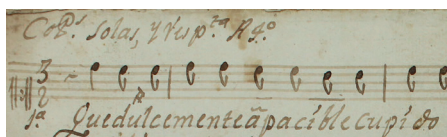 Cop.s Solas, y resp.ta A 4.o
3
2
1a Que dulcemente apacible cupido